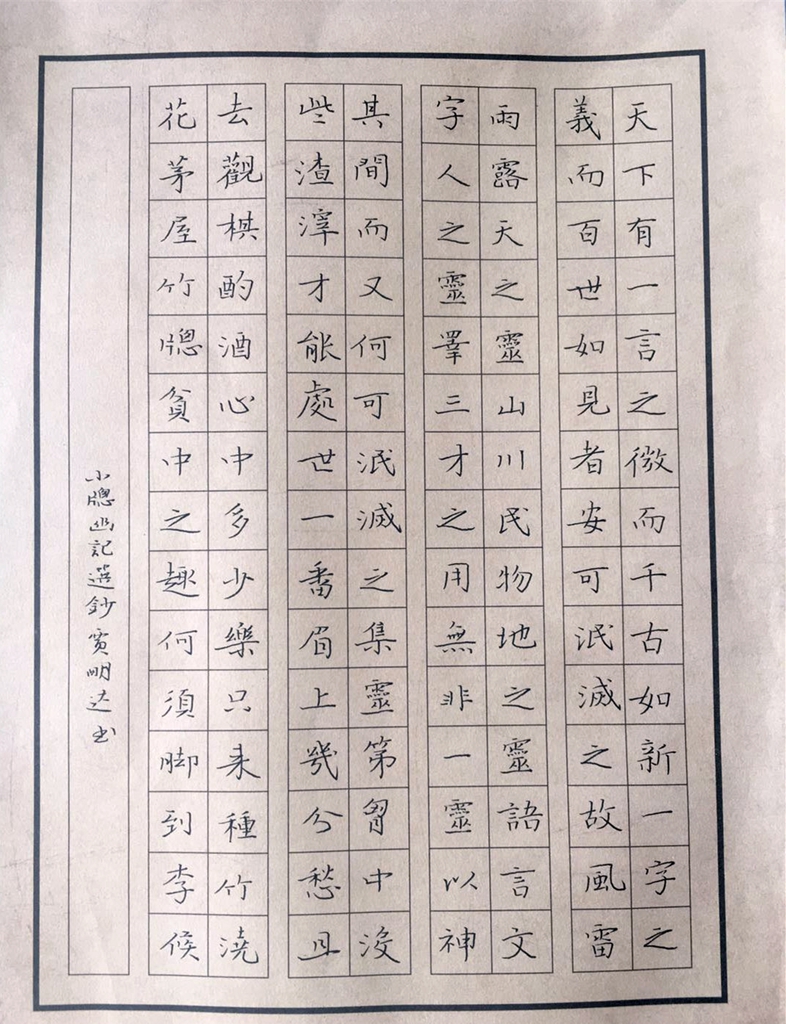 天下有一言之微而千古如新一字之
義而百世如見者安可泯滅之故風雷
雨露天之靈山川民物地之靈語言文
字人之靈睪三才之用無非一靈以神
其間而又何可泯滅之集靈第胷中沒
些渣滓才能處世一番眉上幾分愁且
去觀棋酌酒心中多少樂只来種竹澆
花茅屋竹牕貧中之趣何須脚到李候
小牕幽記選鈔 明达书